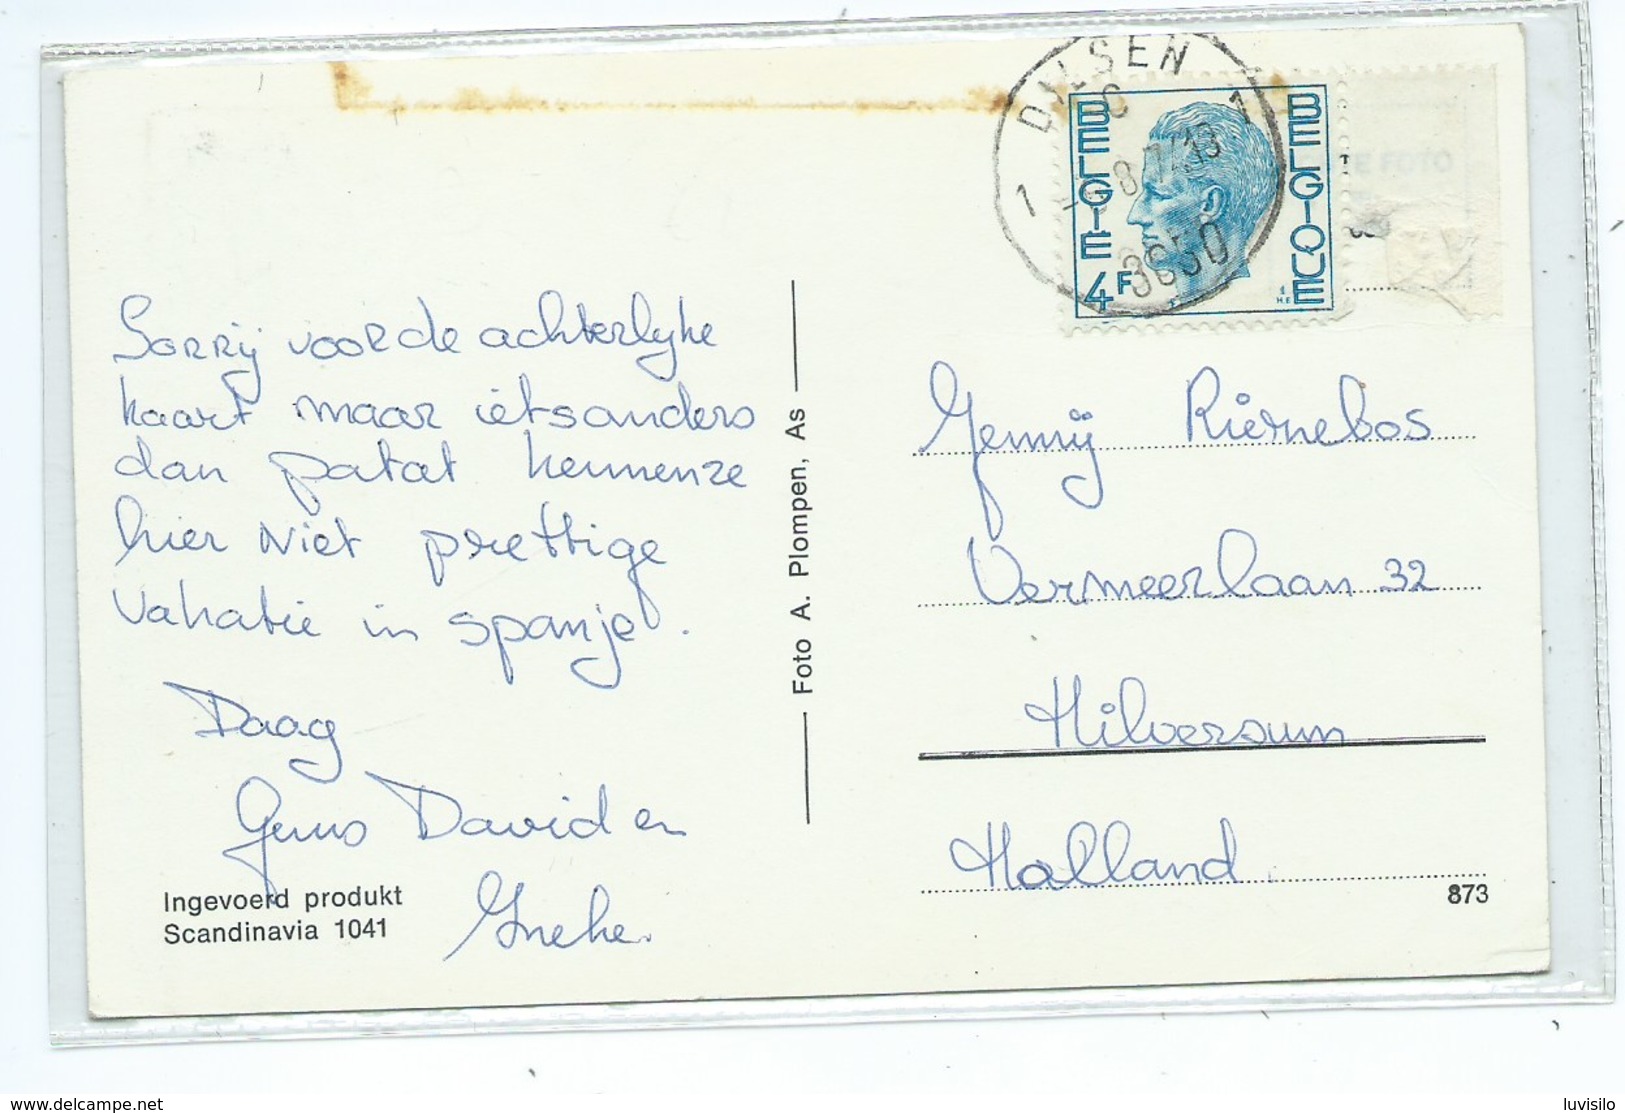 DILSEN
C
1 1
-8.7
13
3650
BELGIE
BELGIQUE
4F
TE FOTO
Sorrij voor de achterlijke
kaart maar iets anders
dan patat kennen ze
hier Niet prettige
vakatie in spanje.
Daag
Guus David en
Ineke.
Ingevoerd produkt
Scandinavia 1041
Foto A. Plompen, As
Jennij Riernebos
Vermeerlaan 32
Hilversum
Holland.
873
www.delcampe.net
luvisilo